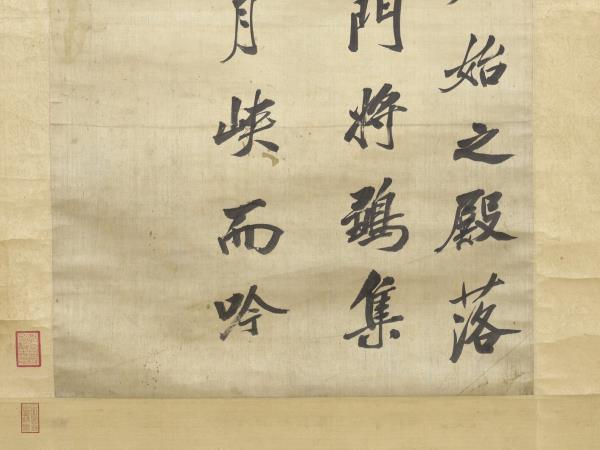 始之殿落
門將集
月峽而吟